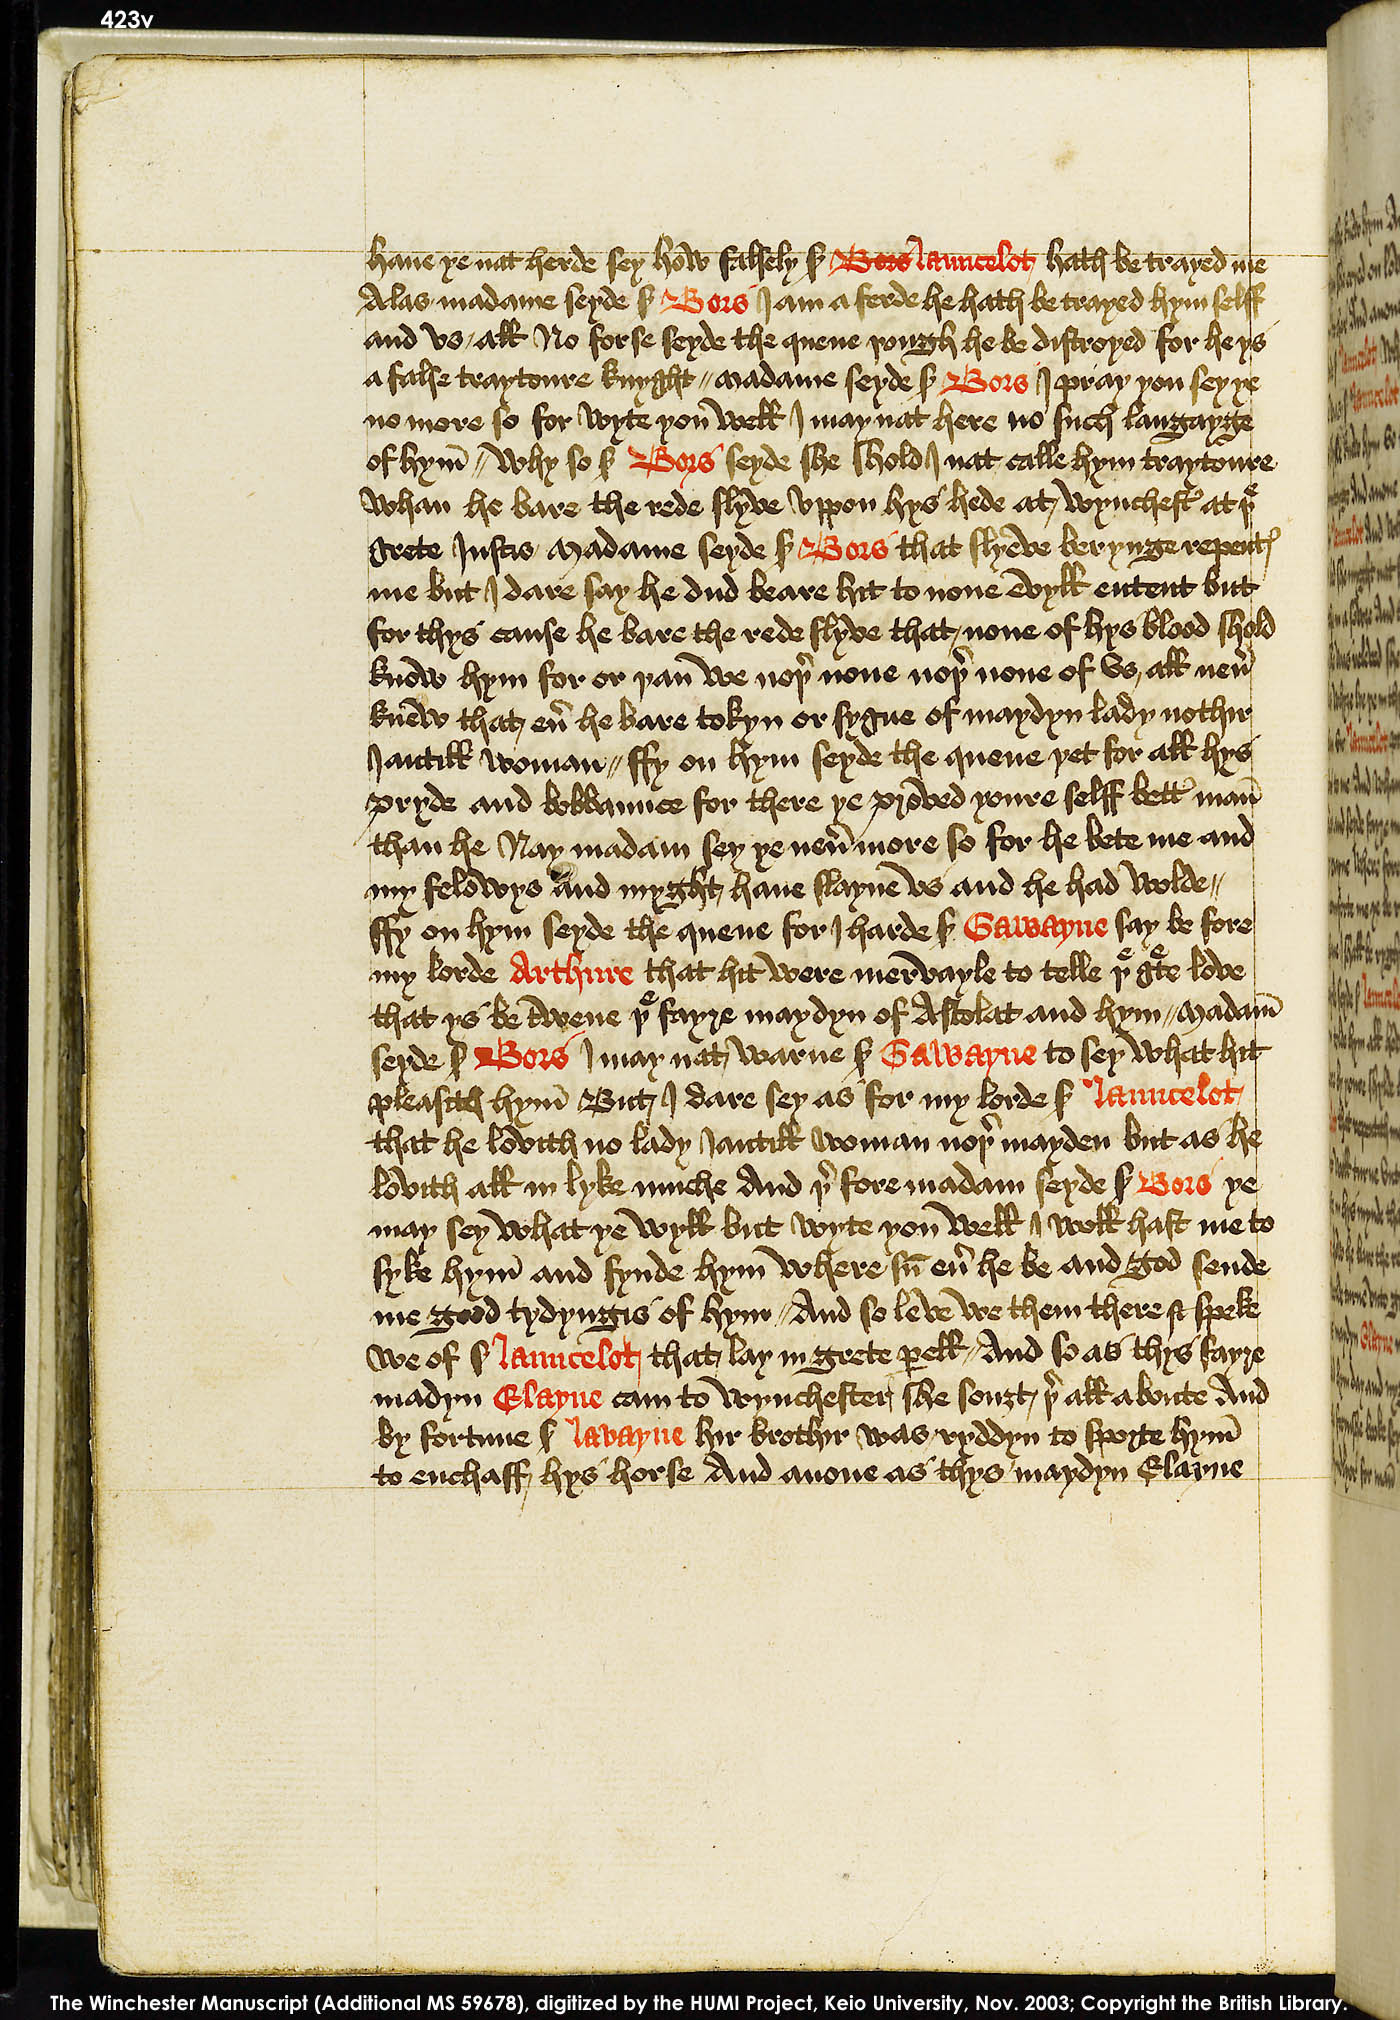 423v
haue ye nat herde sey how falsely sʳ Bors launcelot hath be trayed me
Alas madame seyde sʳ Bors I am a ferde he hath be trayed hym selff
and vs all No forse seyde the quene yough he be distroyed for he ys
a false traytoure knyght // Madame seyde sʳ Bors I pray you sey ye
no more so for wyte you well I may nat here no such langayge
of hym̄ // Why so sʳ Bors seyde she shold I nat calle hym traytoure
whan he bare the rede slyve vppon hys hede at Wynchesť at yᵉ
grete Iustis Madame seyde sʳ Bors that slyeve berynge repentʲ
me but I dare say he dud beare hit to none evyll entent but
for thys cause he bare the rede slyve that none of hys blood shold
know hym for or yan we noyʳ none noyʳ none of vs all neuʳ
knew that euʳ he bare tokyn or sygne of maydyn lady nothir
Iantill woman // ffy on hym seyde the quene yet for all hys
pryde and bobbaunce for there ye proved youre selff betť man̄
than he Nay madam sey ye neuʳ more so for he bete me and
my felowys and myght haue slayne vs and he had wolde //
ffy on hym seyde the quene for I harde sʳ Gawayne say be fore
my lorde Arthure that hit were mervayle to telle yᵉ gᵉte love
that ys be twene yᵉ fayre maydyn of Astolat and hym // Madam̄
seyde sʳ Bors I may nat warne sʳ Gawayne to sey what hit
pleasith hym̄ But I dare sey as for my lorde sʳ launcelot
that he lovith no lady Iantill woman noyʳ mayden but as he
lovith all in lyke muche And yʳ fore madam seyde sʳ Bors ye
may sey what ye wyll but wyte you well I woll hast me to
syke hym̄ and fynde hym where sū euʳ he be and god sende
me good tydyngis of hym // And so leve we them there & speke
we of sʳ launcelot that lay in grete pell // And so as thys fayre
madyn Elayne cam to Wynchester she souȝt yʳ all a boute And
by fortune sʳ lavayne hir brothir was ryddyn to sporte hym̄
to enchaff hys horse And anone as thys maydyn Elayne
The Winchester Manuscript (Additional MS 59678), digitized by the HUMI Project, Keio University, Nov. 2003; Copyright the British Library.